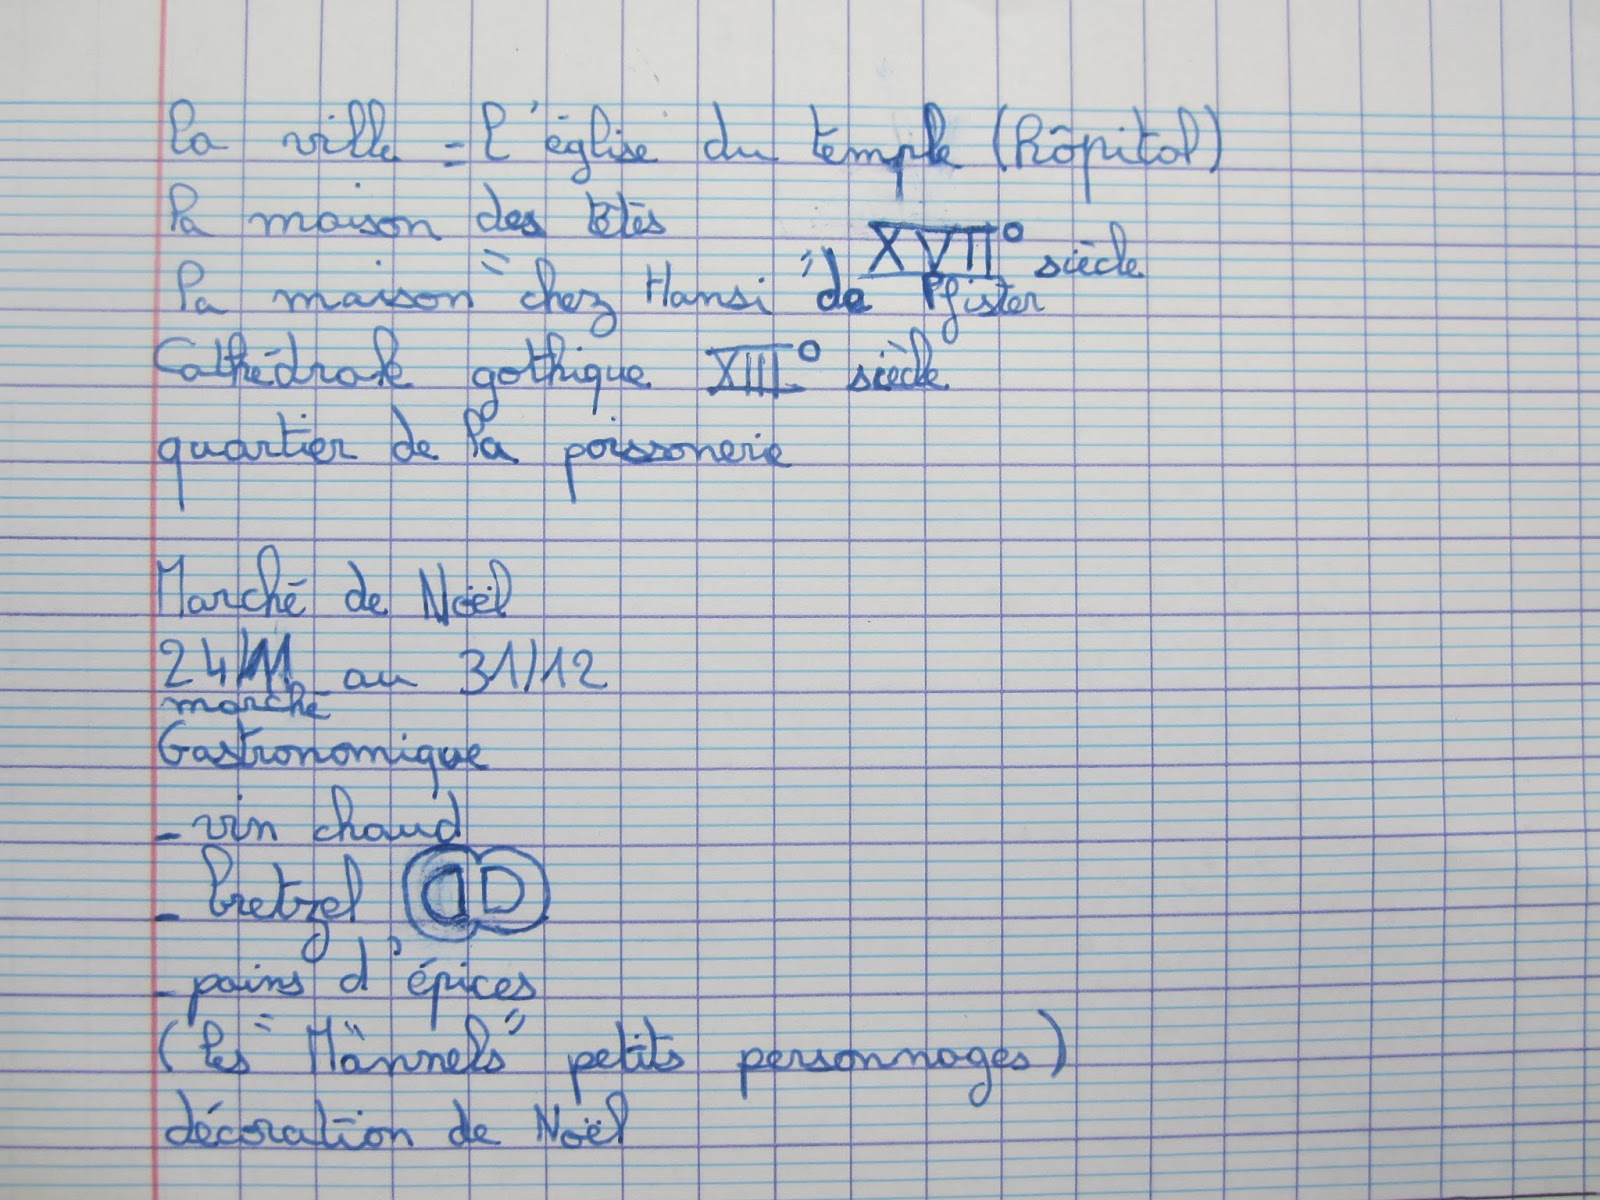 la ville = l'église du temple (hôpital)
la maison des têtes
XVII° siècle
la maison "chez Hansi" de Pfister
Cathédrale gothique XIII° siècle
quartier de la poissonerie
Marché de Noël
24/11 au 31/12
marché
Gastronomique
- vin chaud
- bretzel
- pains d'épices
(les "Männels" petits personnages)
décoration de Noël